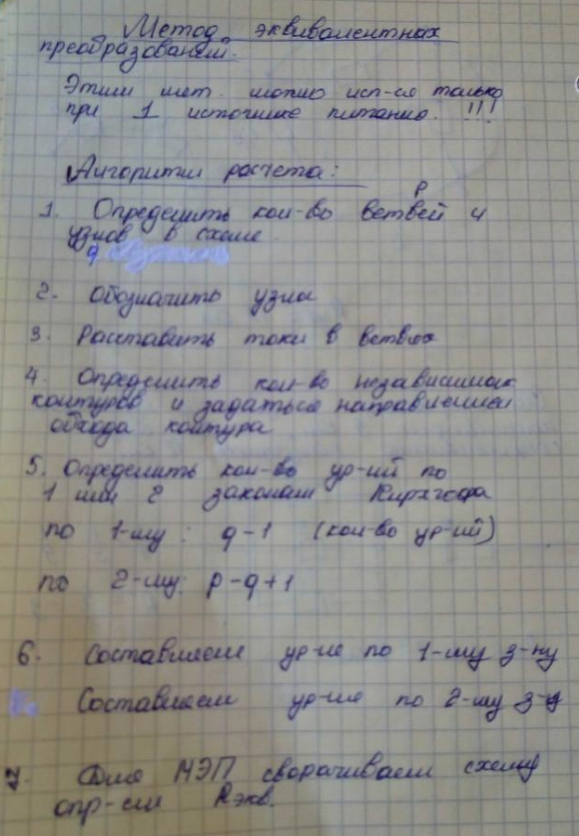 Метод эквивалентных
преобразований.
Этим мет. можно исп-ся только
при 1 источнике питания. !!!
Алгоритм расчета:
p
1. Определить кол-во ветвей и
узлов в схеме
q
2. Обозначить узлы
3. Расставить токи в ветвях
4. Определить кол-во независимых
контуров и задаться направлением
обхода контура
5. Определить кол-во ур-ий по
1 или 2 законам Кирхгофа
по 1-му: q-1 (кол-во ур-ий)
по 2-му: p-q+1
6. Составляем ур-ие по 1-му з-ну
Составляем ур-ие по 2-му з-у
7. Для МЭП сворачиваем схему
опр-ем Rэкв.